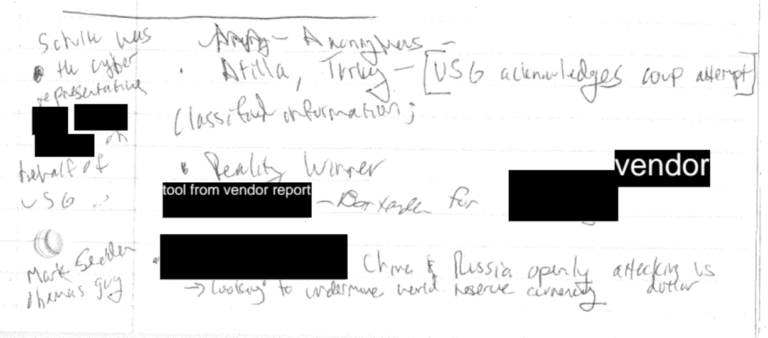 Schulte was
the cyber
representative
on
behalf of
USG
Anonymous -
Atilla, Turkey - [USG acknowledges coup attempt]
Classified information;
Reality Winner
vendor
tool from vendor report
for
China & Russia openly attacking US
dollar
→ looking to undermine world reserve currency
Mark
guy